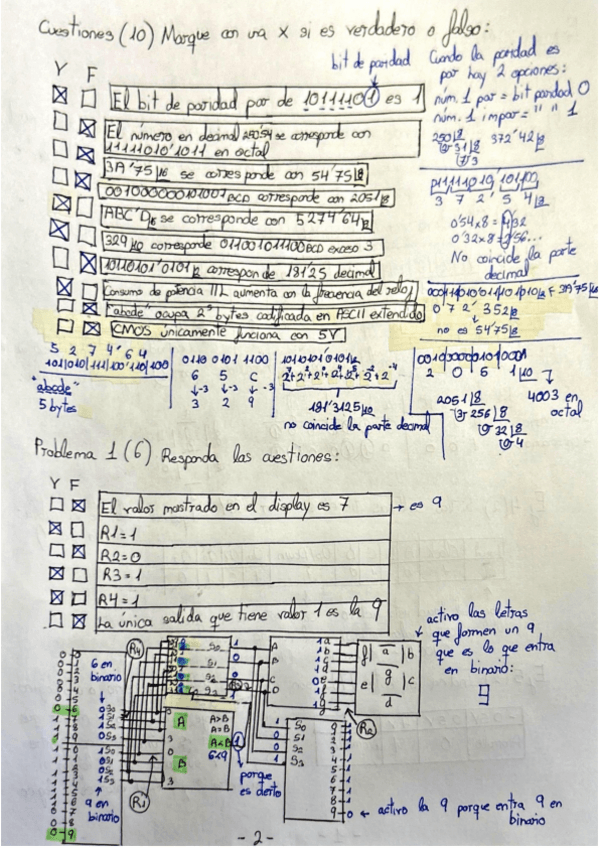 Cuestiones (10) Marque con una X si es verdadero o falso:
bit de paridad
Cuando la paridad es
par hay 2 opciones:
núm. 1 par = bit paridad 0
núm. 1 impar = " " 1
Y F
El bit de paridad par de 10111101 es 1
El número en decimal 250'54 se corresponde con
11111010'1011 en octal
3A'75|16 se corresponde con 54'75|8
0010000000101001 BCD corresponde con 2051|8
ABC'D|16 se corresponde con 5274'64|8
329|10 corresponde 011001011100 BCD exceso 3
10110101'0101|2 corresponde 181'25 decimal
Consumo de potencia TTL aumenta con la frecuencia del reloj
"abcde" ocupa 2^3 bytes codificada en ASCII extendido
CMOS únicamente funciona con 5V
250|8
372'42|8
3 7 2' 5 4|8
0'54x8 = 4'32
0'32x8 = 2'56...
No coincide la parte
decimal
0 7 2' 3 5 2|8
no es 54'75|8
5 2 7 4' 6 4
101|010|111|100'|110|100
"abcde"
5 bytes
0110 0101 1100
6 5 C
↓-3 ↓-3 ↓-3
3 2 9
10110101'0101|2
181'3125|10
no coincide la parte decimal
2 0 5 1|10
2051|8
256|8
32|8
4
4003 en
octal
Problema 1 (6) Responda las cuestiones:
Y F
El valor mostrado en el display es 7 → es 9
R1=1
R2=0
R3=1
R4=1
La única salida que tiene valor 1 es la 9
activo las letras
que formen un 9
que es lo que entra
en binario:
6 en
binario
9 en
binario
R4
R1
R2
A
B
A>B
A=B
A<B
6<9
porque
es cierto
S0
S1
S2
S3
A
B
C
D
a
b
c
d
e
f
g
f| a |b
g
e| d |c
0 ← activo la 9 porque entra 9 en
binario
- 2 -